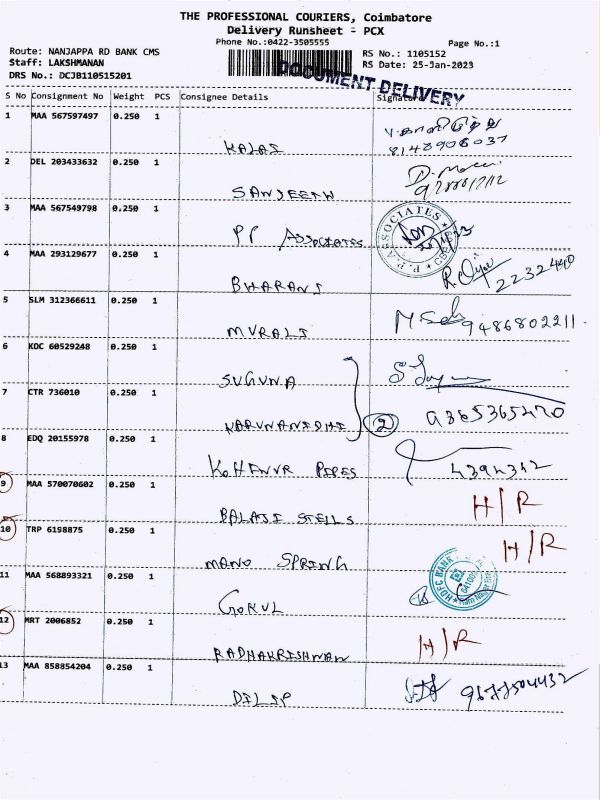 THE PROFESSIONAL COURIERS, Coimbatore
Delivery Runsheet - PCX
Phone No.:0422-3505555 Page No.:1
Route: NANJAPPA RD BANK CMS RS No.: 1105152
Staff: LAKSHMANAN RS Date: 25-Jan-2023
DRS No.: DCJB110515201
DOCUMENT DELIVERY
S No Consignment No Weight PCS Consignee Details Signature
1 MAA 567597497 0.250 1
KALAI 8148906037
2 DEL 203433632 0.250 1
SANJEETH
3 MAA 567549798 0.250 1
PP Associates P.P. ASSOCIATES
4 MAA 293129677 0.250 1
BHARANI 2232440
5 SLM 312366611 0.250 1
MURALI 9486802211
6 KOC 60529248 0.250 1
SUGUNA
7 CTR 736010 0.250 1
KARUNANIDHI 2 9365365470
8 EDQ 20155978 0.250 1
KOHENUR PIPES 4394342
9 MAA 570070602 0.250 1 H/R
BALAJI STEELS
10 TRP 6198875 0.250 1 H/R
MANO SPRING
11 MAA 568893321 0.250 1 HDFC BANK
GOKUL
12 MRT 2006852 0.250 1 H/R
RADHAKRISHNAN
13 MAA 858854204 0.250 1
DILIP 9677504432